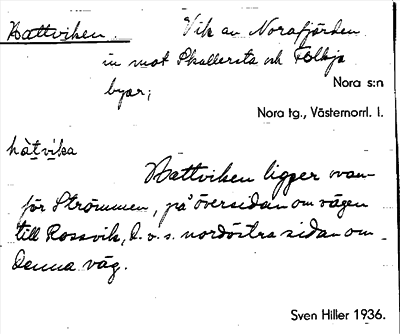 Hattviken. Vik av Norafjärden
in mot Skullersta och Fölkja
byar;
Nora s:n
Nora tg., Västernorrl. l.
hàt̲vi̲ka
Hattviken ligger ovan-
för Strömmen, på översidan om vägen
till Rossvik, d.v.s. nordöstra sidan om
denna väg.
Sven Hiller 1936.